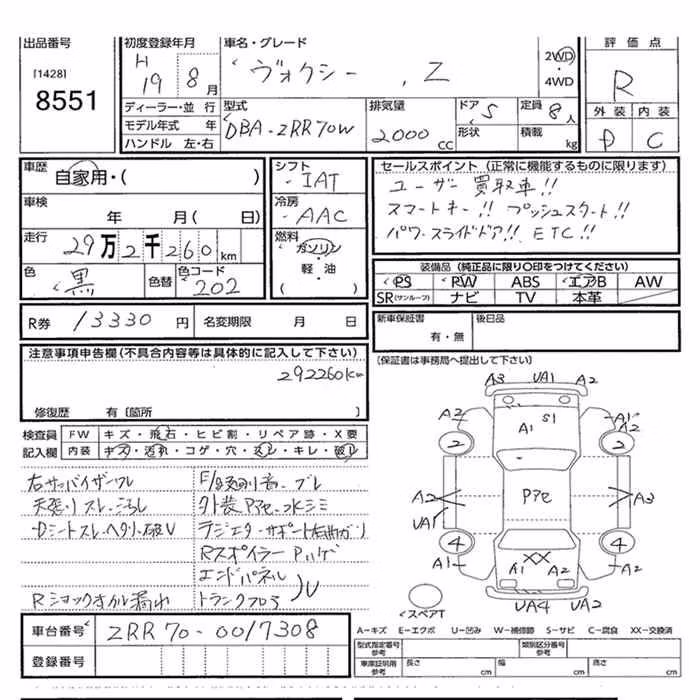 出品番号
[1428]
8551
初度登録年月
H 19 8 月
車名・グレード
ヴォクシー, Z
2WD
・
4WD
評価点
R
外装 内装
D C
ディーラー・並行
モデル年式 年
ハンドル 左・右
型式
DBA-ZRR70W
排気量
2000 cc
ドア 5
形状
定員 8人
積載 kg
車歴
自家用・( )
車検
年 月( 日)
走行
29万2千260km
色
黒
色替
色コード
202
シフト
IAT
冷房
AAC
燃料
ガソリン
軽・油
( )
セールスポイント(正常に機能するものに限ります)
ユーザー買取車!!
スマートキー!! プッシュスタート!!
パワースライドドア!! ETC!!
装備品(純正品に限り〇印をつけてください)
PS PW ABS エアB AW
SR(サンルーフ) ナビ TV 本革
R券 13330円 名変期限 月 日
新車保証書
有・無
後日品
[保証書は事務局へ提出して下さい]
注意事項申告欄(不具合内容等は具体的に記入して下さい)
292260km
修復歴 有[箇所 ]
検査員
記入欄
FW キズ・飛石・ヒビ割・リペア跡・X要
内装 キズ・汚れ・コゲ・穴・スレ・キレ・破レ
右サンバイザーワレ
天張りスレ
Dシートスレ、ヘタリ、破レ
Rショックオイル漏れ
外装P7e、水シミ
ラジエターサポート右曲ガリ
RスポイラーPハゲ
エンドパネル
トランクフロア
U
A3 UA1 A2
A2 A1 S1 A1 A2
2 2
A2 P7e A3
UA1
4 4
A1 XX A2
A1 A2
UA4 UA2
スペアT
車台番号 ZRR70-0017308
登録番号
A―キズ E―エクボ U―凹み W―補修跡 S―サビ C―腐食 XX―交換済
型式指定番号
参考
類別区分番号
参考
車庫証明用
参考
長さ cm 幅 cm 高さ cm